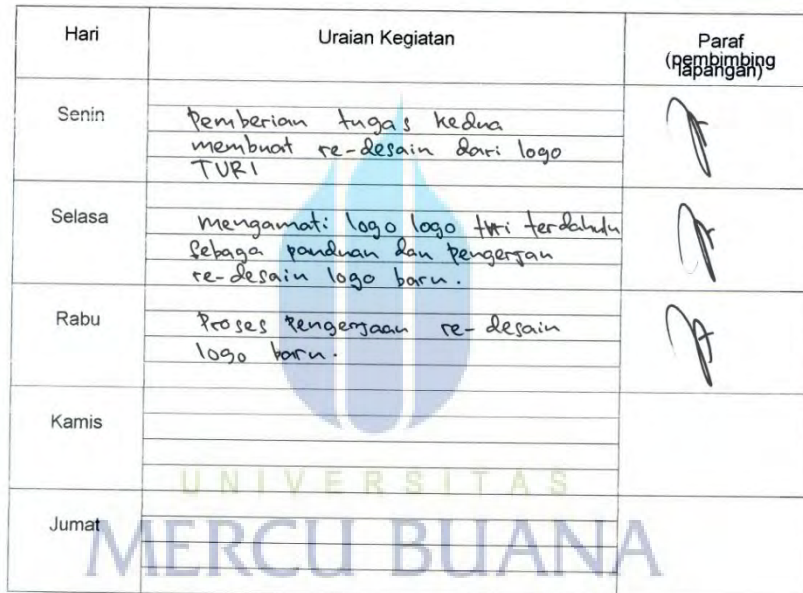 Hari
Uraian Kegiatan
Paraf
(pembimbing
lapangan)
Senin
Pemberian tugas kedua
membuat re-desain dari logo
TVRI
Selasa
mengamati logo logo tvri terdahulu
sebaga panduan dan pengerjan
re-desain logo baru.
Rabu
Proses Pengerjaan re-desain
logo baru.
Kamis
UNIVERSITAS
Jumat
MERCU BUANA